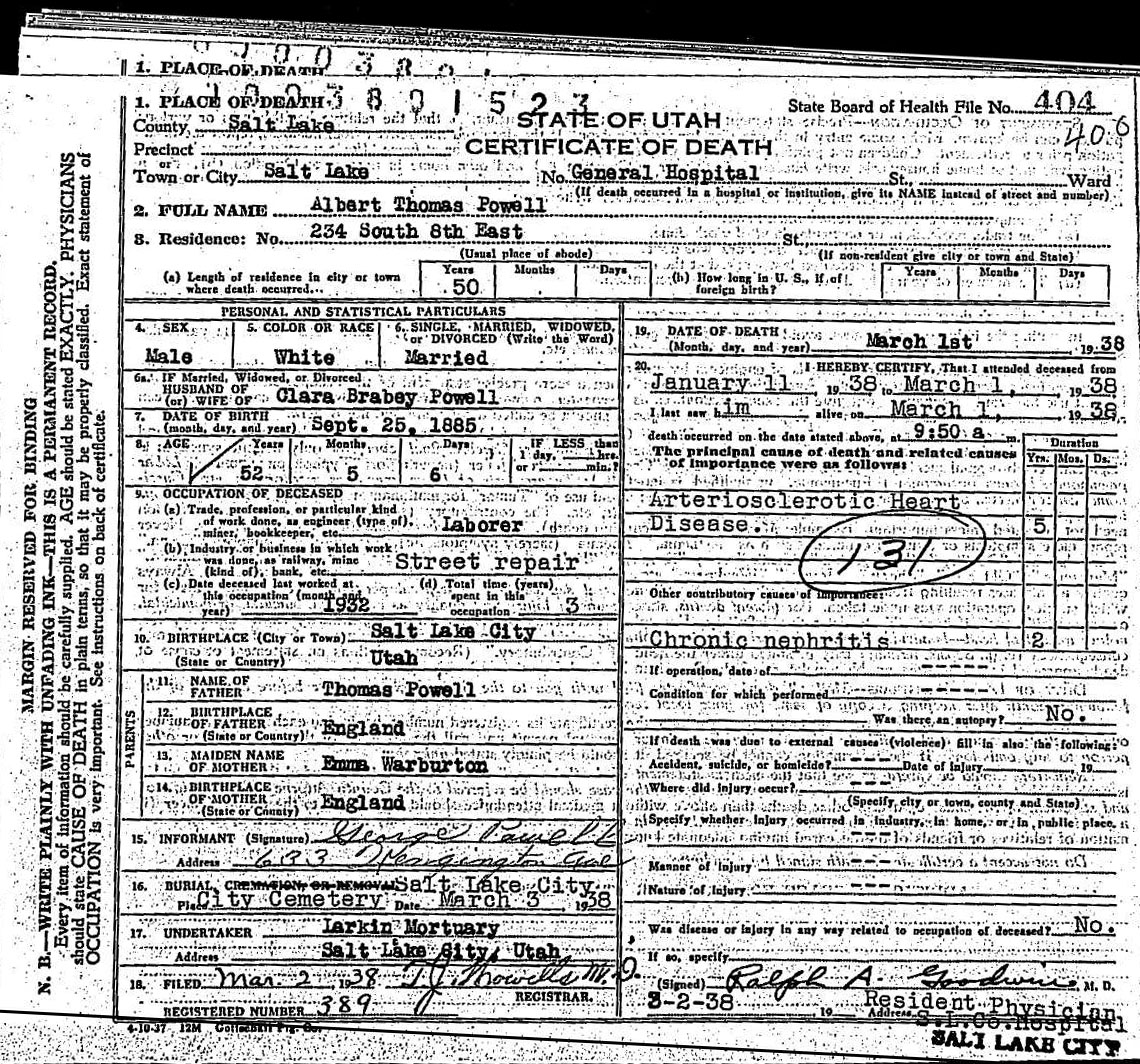 1. PLACE OF DEATH
1. PLACE OF DEATH
State Board of Health File No. 404
406
County Salt Lake
STATE OF UTAH
Precinct
CERTIFICATE OF DEATH
or
Town or City Salt Lake No. General Hospital St., Ward
(If death occurred in a hospital or institution, give its NAME instead of street and number)
2. FULL NAME Albert Thomas Powell
3. Residence: No. 234 South 8th East St.
(Usual place of abode) (If non-resident give city or town and State)
(a) Length of residence in city or town where death occurred.. Years 50 Months Days
(h) How long in U. S., if of foreign birth? Years Months Days
MARGIN RESERVED FOR BINDING
N. B.—WRITE PLAINLY WITH UNFADING INK—THIS IS A PERMANENT RECORD.
Every item of information should be carefully supplied. AGE should be stated EXACTLY. PHYSICIANS
should state CAUSE OF DEATH in plain terms, so that it may be properly classified. Exact statement of
OCCUPATION is very important. See instructions on back of certificate.
PERSONAL AND STATISTICAL PARTICULARS
4. SEX Male
5. COLOR OR RACE White
6. SINGLE, MARRIED, WIDOWED, or DIVORCED (Write the Word) Married
6a. IF Married, Widowed, or Divorced
HUSBAND OF
(or) WIFE OF Clara Brabey Powell
7. DATE OF BIRTH
(month, day, and year) Sept. 25, 1885
8. AGE Years 52 Months 5 Days 6 IF LESS than 1 day, hrs. or min.?
9. OCCUPATION OF DECEASED
(a) Trade, profession, or particular kind
of work done, as engineer (type of),
miner, bookkeeper, etc. Laborer
(b) Industry or business in which work
was done, as railway, mine
(kind of), bank, etc. Street repair
(c) Date deceased last worked at this occupation (month and year) 1932
(d) Total time (years) spent in this occupation 3
10. BIRTHPLACE (City or Town) Salt Lake City
(State or Country) Utah
PARENTS
11. NAME OF FATHER Thomas Powell
12. BIRTHPLACE OF FATHER (State or Country) England
13. MAIDEN NAME OF MOTHER Emma Warburton
14. BIRTHPLACE OF MOTHER (State or Country) England
15. INFORMANT (Signature) George Powell
Address 633
16. BURIAL, CREMATION, OR REMOVAL Salt Lake City
Place City Cemetery Date March 3, 1938
17. UNDERTAKER Larkin Mortuary
Address Salt Lake City, Utah
18. FILED Mar. 2 1938 T J Howells M.D.
REGISTRAR.
REGISTERED NUMBER 389
4-10-37 12M
19. DATE OF DEATH
(Month, day, and year) March 1st 1938
20. I HEREBY CERTIFY, That I attended deceased from
January 11 1938, to March 1, 1938
I last saw him alive on March 1, 1938
death occurred on the date stated above, at 9:50 a m.
The principal cause of death and related causes
of importance were as follows:
Duration
Yrs. Mos. Ds.
Arteriosclerotic Heart
Disease. 5
131
Other contributory causes of importance:
Chronic nephritis 2
If operation, date of ----
Condition for which performed ----
Was there an autopsy? No.
If death was due to external causes (violence) fill in also the following:
Accident, suicide, or homicide? --- Date of injury 19
Where did injury occur? ---
(Specify city or town, county and State)
Specify whether injury occurred in industry, in home, or in public place.
---
Manner of injury ---
Nature of injury ---
Was disease or injury in any way related to occupation of deceased? No.
If so, specify
(Signed) Ralph A. Goodwin M. D.
3-2-38 19 Address Resident Physician
S.L.Co.Hospital
SALT LAKE CITY